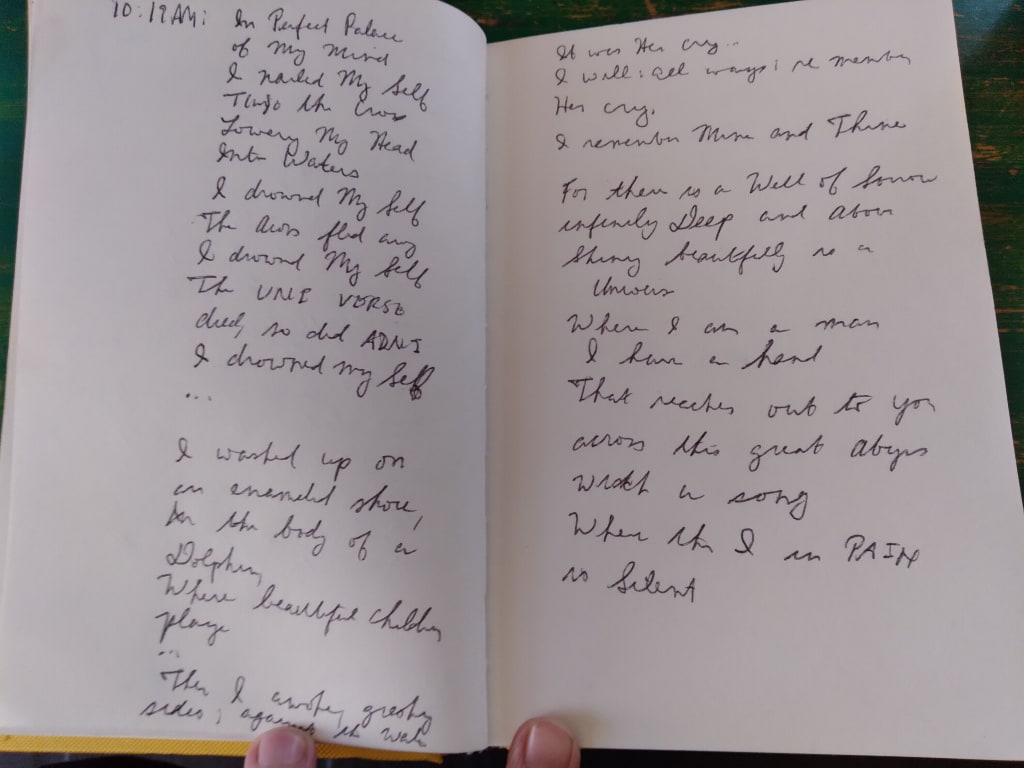 10:19AM: In Perfect Palace
of My Mind
I nailed My Self
the Cross
My Head
Into Waters
I drowned My Self
The
I drowned My Self
The UNI VERSE
died, so did
I drowned my Self
...
I washed up on
an shore,
In the body of a
Dolphin
Where beautiful Children
play
...
Then I
sides; against the
It was Her cry..
I will; all ways; re member
Her cry.
I remember Mine and Thine
For there is a Well of Sorrow
infinitely Deep and Above
Shiny beautifully is a
Univers
Where I am a man
I have a hand
That reaches out to You
across this great Abyss
a song
When the I in PAIN
is Silent